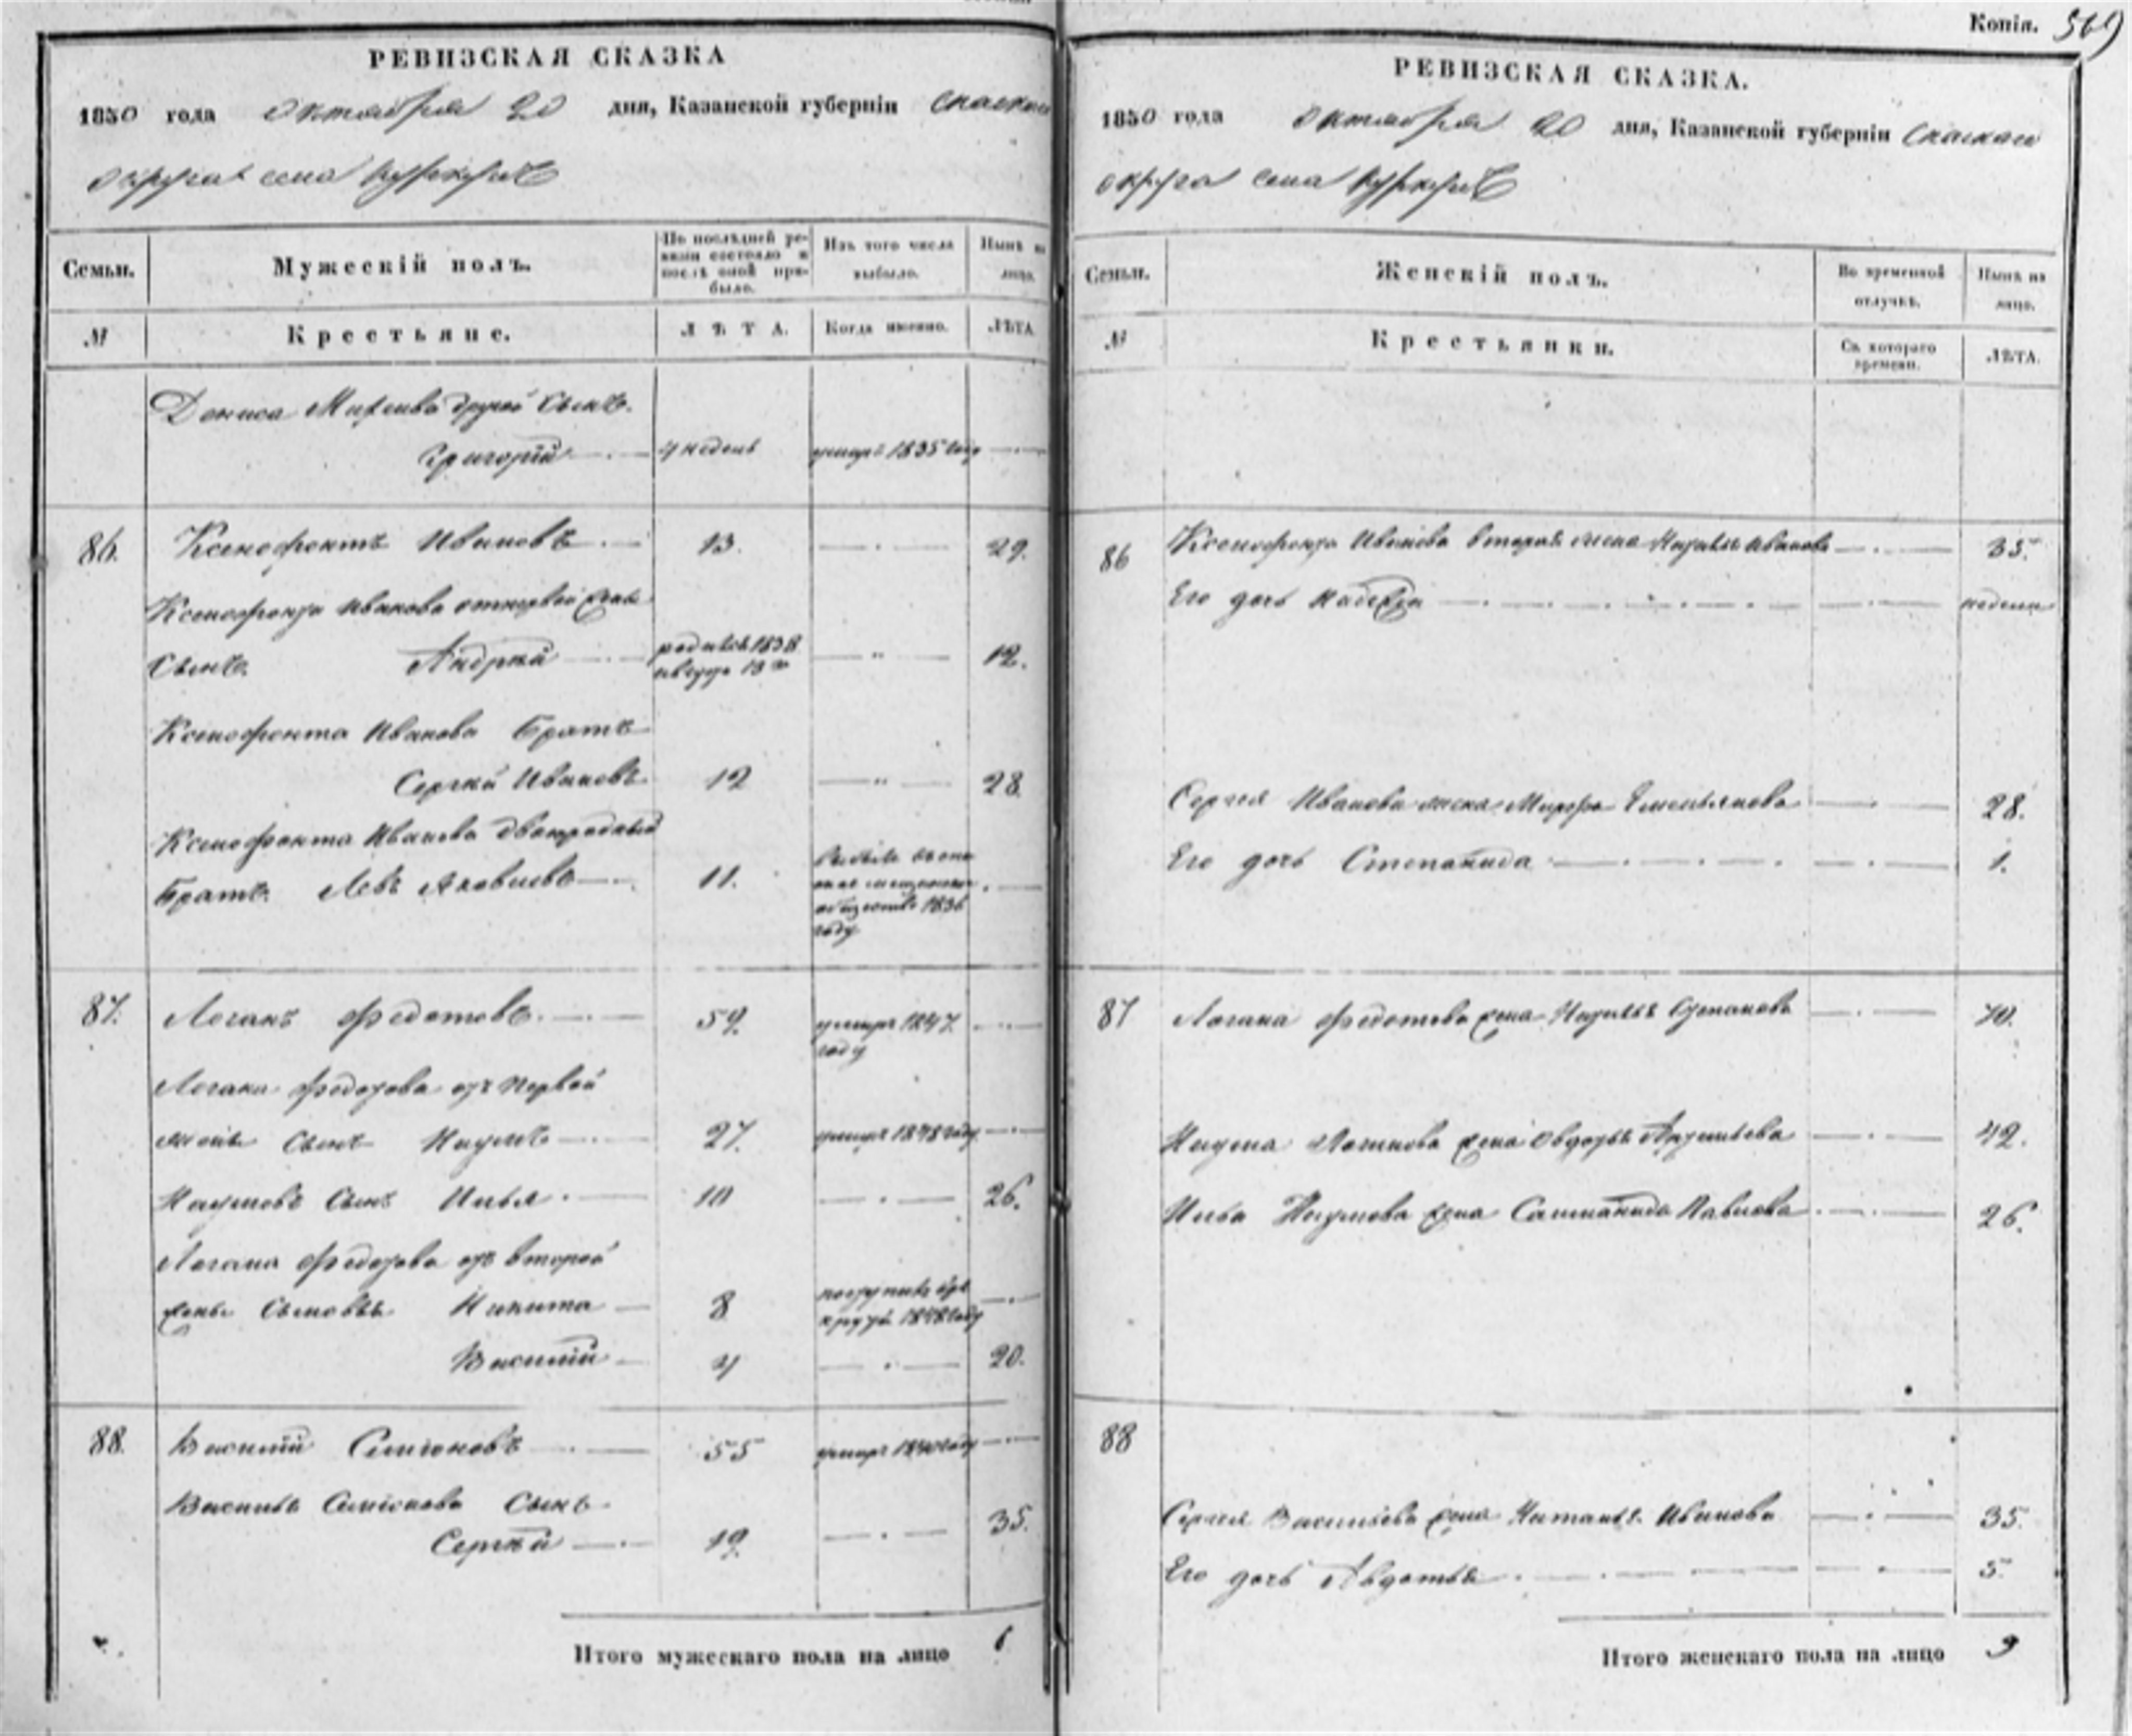 РЕВИЗСКАЯ СКАЗКА
1850 года октября 20 дня, Казанской губерніи Спаскаго
округа села
Семьи.
Мужескій полъ.
По послѣдней ре-
визіи состояло и
послѣ оной при-
было.
Изъ того числа
выбыло.
Нынѣ на
лицо.
№
Крестьяне.
ЛѢТА.
Когда именно.
ЛѢТА
Дениса Михеива другой Сынъ.
Григорій 4 недель умеръ 1835 году
86. Ксенофонтъ Ивановъ 13. 29.
Ксенофонта Иванова отпервой жены
Сынъ. Андрей родился 1838 августа 12.
Ксенофонта Иванова Братъ
Сергѣй Ивановъ 12 28.
Ксенофонта Иванова двоюродный
Братъ. Левъ Яковлевъ 11. 1836
году
87. Логинъ Федотовъ 59. умеръ 1847.
году
Логина Федотова отъ первой
жены Сынъ Наумъ 27. умеръ 1848 году
Наумовъ Сынъ Илья 10 26.
Логина Федотова отъ второй
жены Сыновья Никита 8 поступилъ въ рекруты 1848 году
Василій 4 20.
88. Василій Симіоновъ 55 умеръ 1840 году
Василья Симіонова Сынъ
Сергѣй 19. 35.
Итого мужескаго пола на лицо 6
Копія. 569
РЕВИЗСКАЯ СКАЗКА.
1850 года октября 20 дня, Казанской губерніи Спаскаго
округа села
Семьи.
Женскій полъ.
Во временной
отлучкѣ.
Нынѣ на
лицо.
№
Крестьянки.
Съ котораго
времени.
ЛѢТА.
86 Ксенофонта Иванова вторая жена Наталья Иванова 35.
Его дочь Надежда недели
Сергея Иванова жена Марфа Емельянова 28.
Его дочь Степанида 1.
87 Логина Федотова жена Наталья Степанова 70.
Наума Логинова жена Овдотья Артемьева 42.
Илья Наумова жена Степанида Павлова 26.
88
Сергея Васильева жена Наталья Иванова 35.
Его дочь Авдотья 5.
Итого женскаго пола на лицо 9